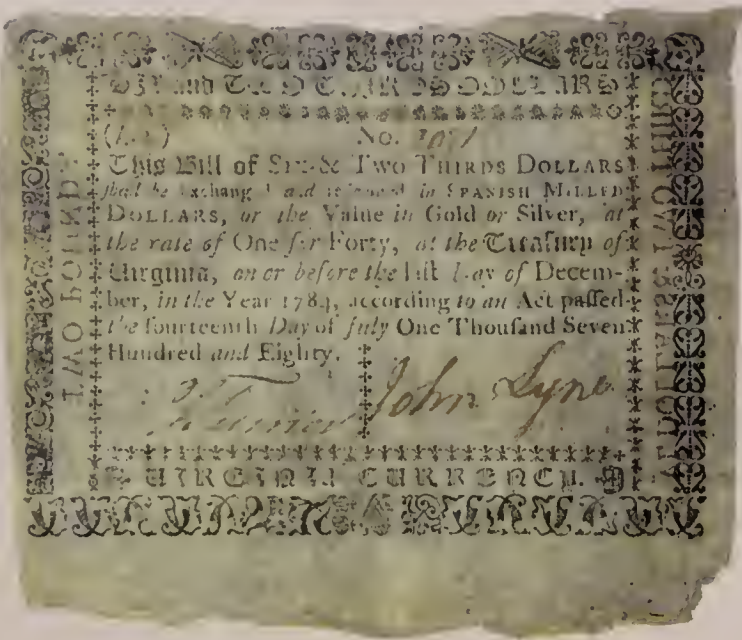 SIX and TWO THIRDS DOLLARS
No.
This Bill of SIX & TWO THIRDS DOLLARS
ſhall be exchang'd and redeem'd in SPANISH MILLED
DOLLARS, or the Value in Gold or Silver, at
the rate of One for Forty, at the Treaſury of
Virginia, on or before the laſt Day of Decem-
ber, in the Year 1784, according to an Act paſſed
the fourteenth Day of July One Thouſand Seven
Hundred and Eighty.
John Lyne
VIRGINIA CURRENCY.
TWO POUNDS
AT DOLLARS